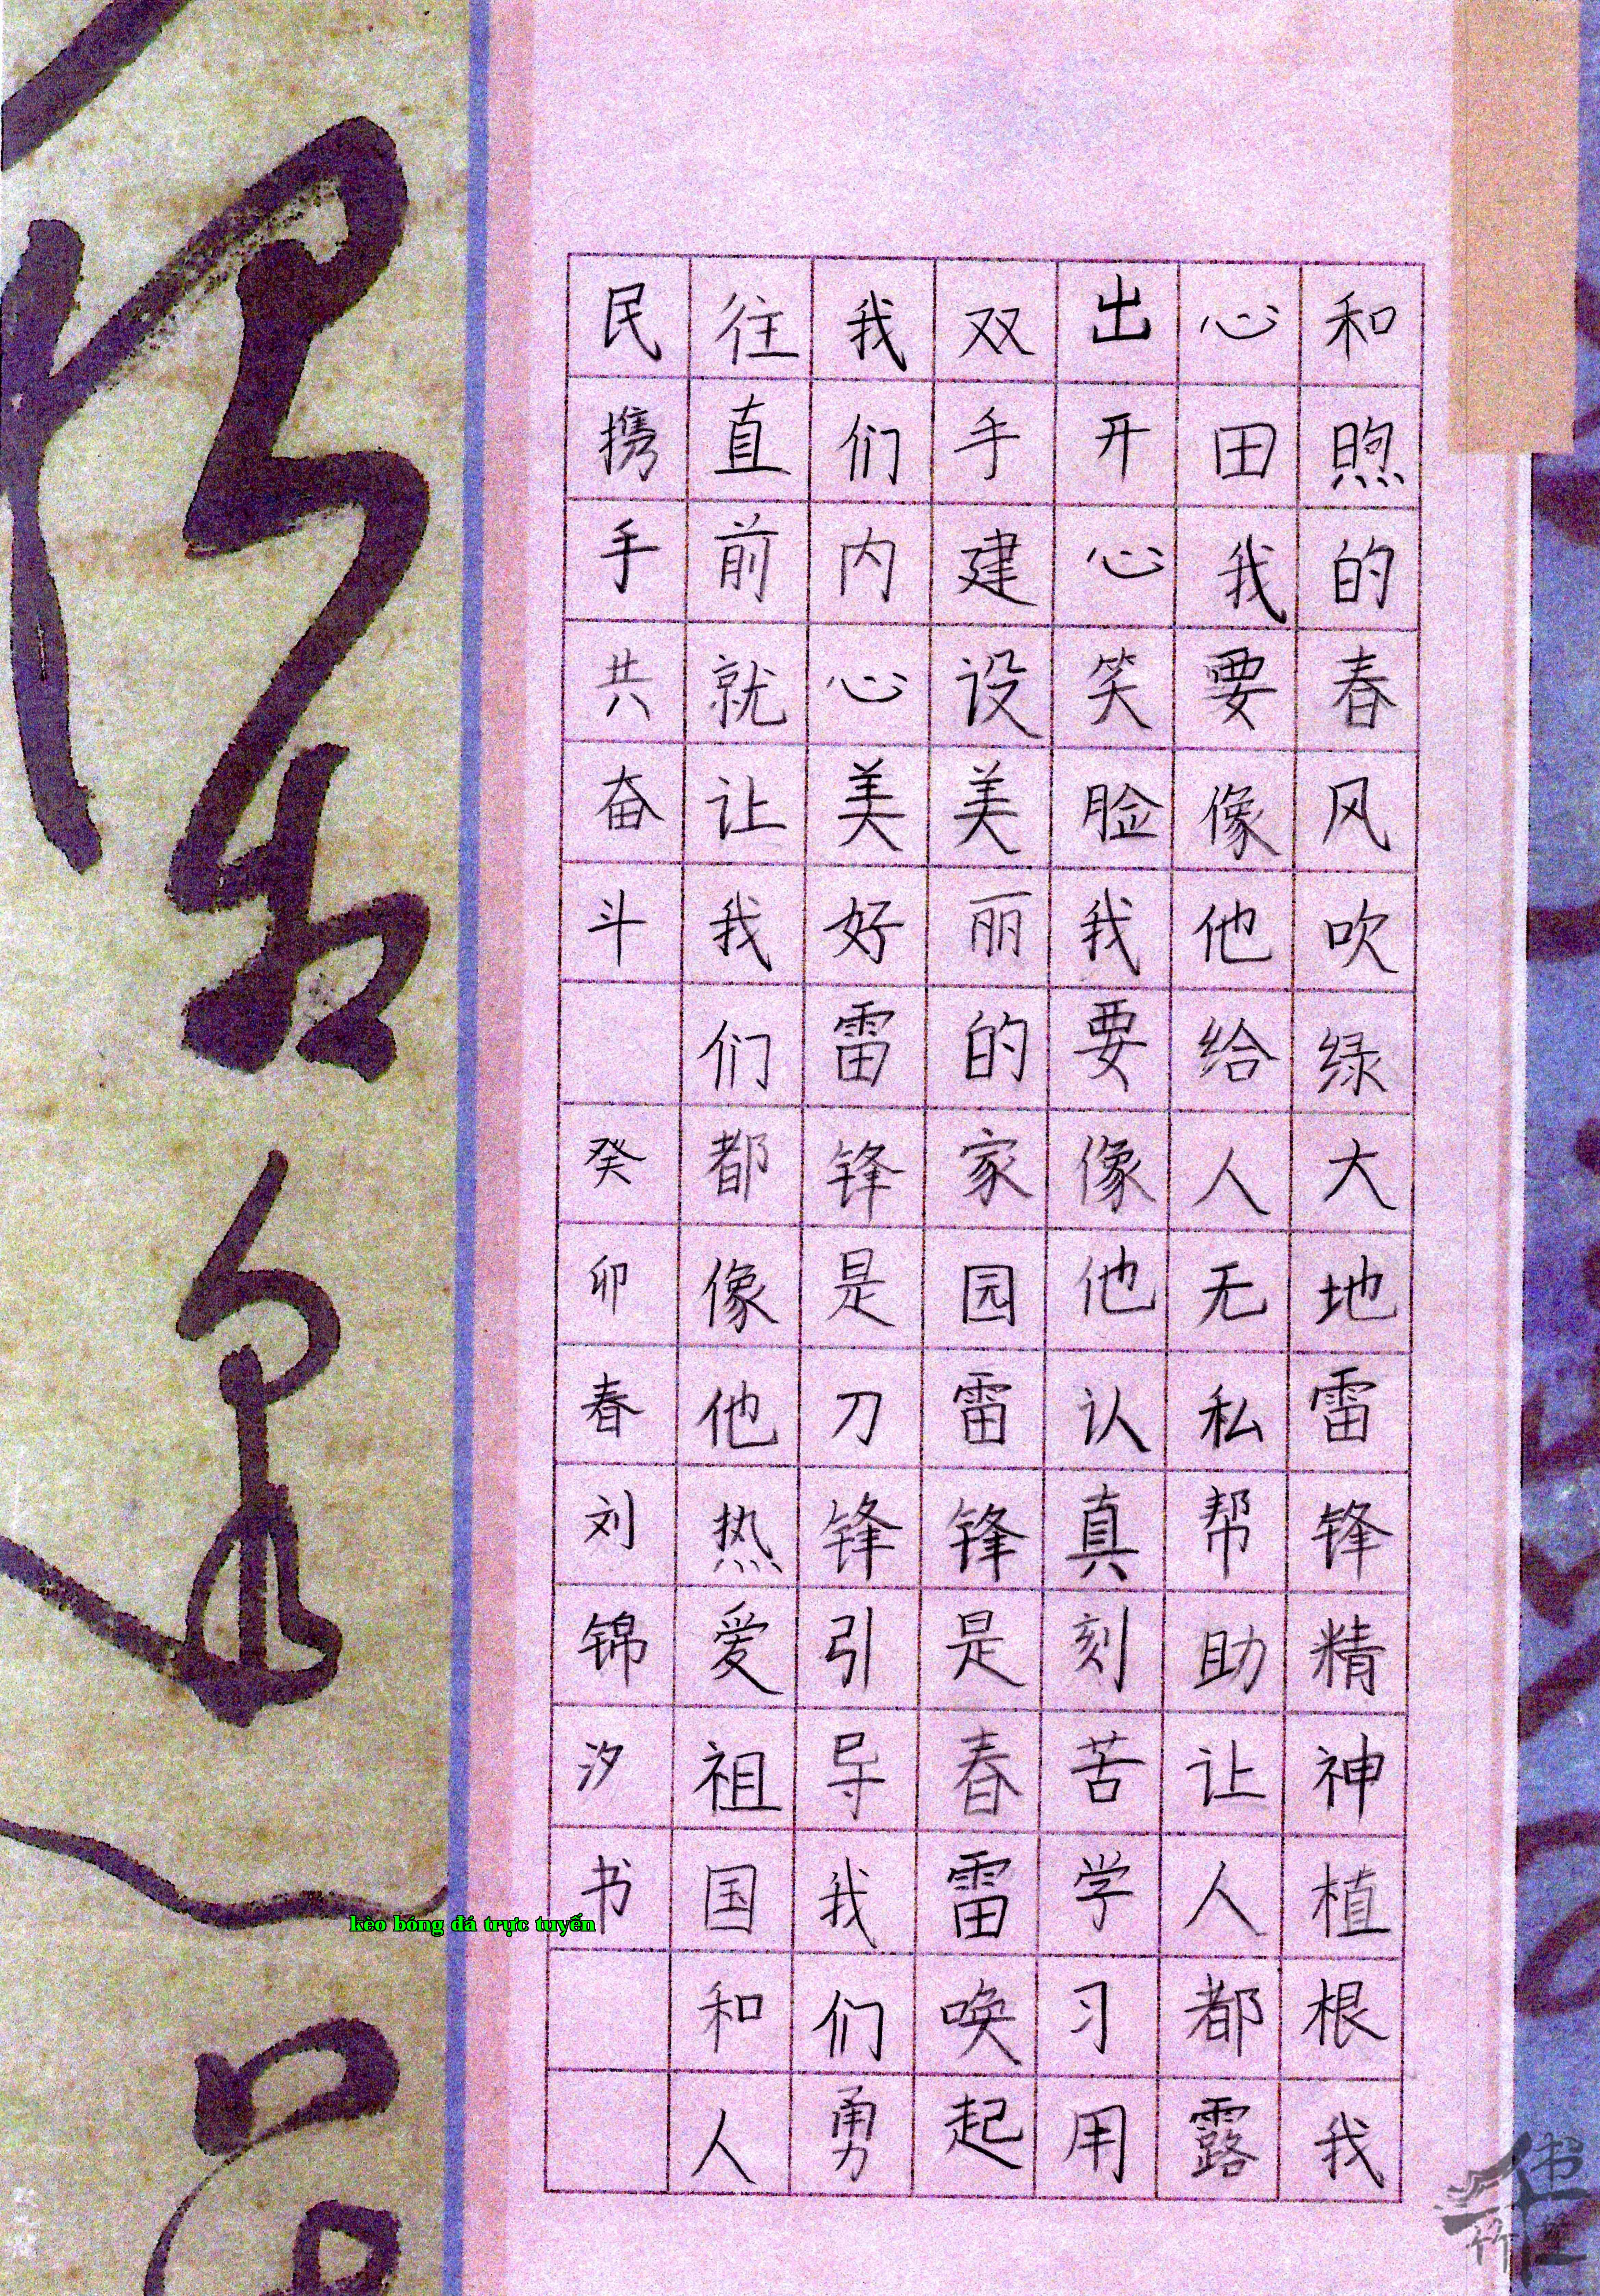 和煦的春风吹绿大地雷锋精神植根我
心田我要像他给人无私帮助让人都露
出开心笑脸我要像他认真刻苦学习用
双手建设美丽的家园雷锋是春雷唤起
我们内心美好雷锋是刀锋引导我们勇
往直前就让我们都像他热爱祖国和人
民携手共奋斗 癸卯春刘锦汐书
kèo bóng đá trực tuyến